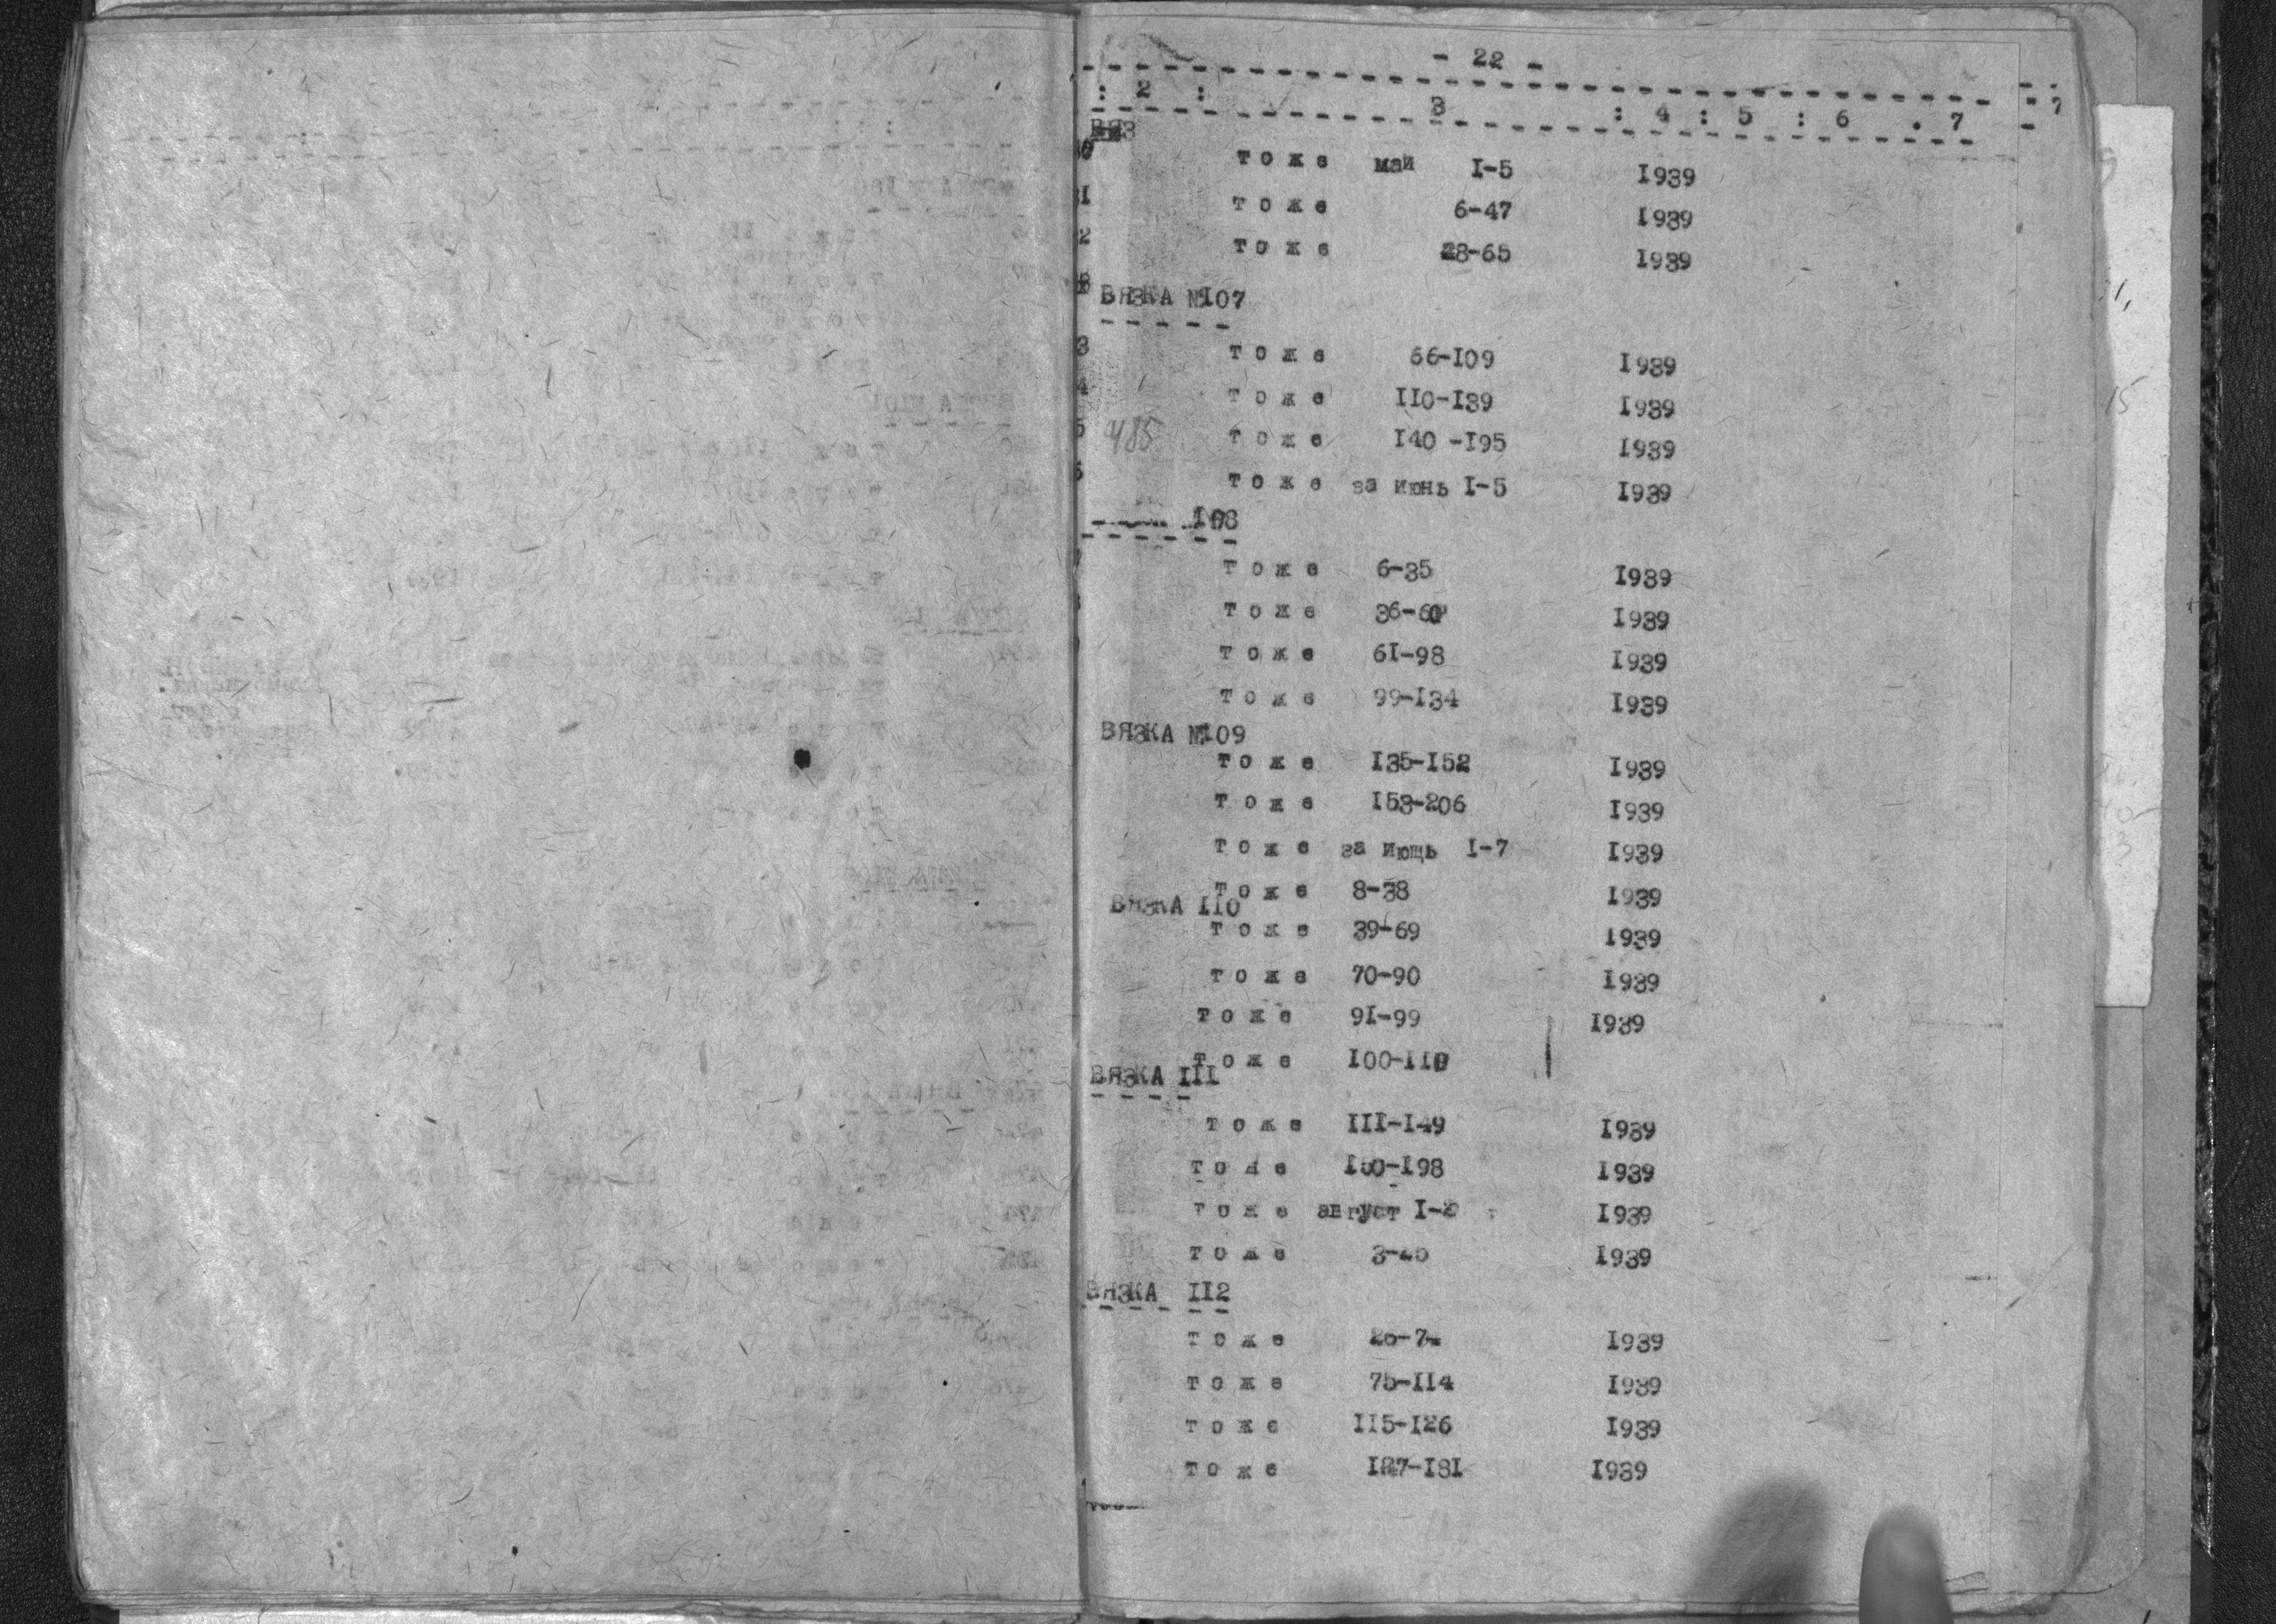 - 22 -
: 2 : 3 : 4 : 5 : 6 . 7
т о ж е май I-5 I939
т о ж е 6-47 I939
т о ж е 28-65 I939
ВЯЗКА №I07
т о ж е 66-I09 I939
т о ж е II0-I39 I939
485 т о ж е I40 -I95 I939
т о ж е за июнь I-5 I939
I08
т о ж е 6-35 I939
т о ж е 36-60 I939
т о ж е 6I-98 I939
т о ж е 99-I34 I939
ВЯЗКА №I09
т о ж е I35-I52 I939
т о ж е I53-206 I939
т о ж е за июць I-7 I939
т о ж е 8-38 I939
ВЯЗКА II0
т о ж е 39-69 I939
т о ж е 70-90 I939
т о ж е 9I-99 I939
т о ж е I00-II0
ВЯЗКА III
т о ж е III-I49 I939
т о ж е I50-I98 I939
т о ж е август I-2 I939
т о ж е I939
ВЯЗКА II2
т о ж е I939
т о ж е 75-II4 I939
т о ж е II5-I26 I939
т о ж е I27-I8I I939